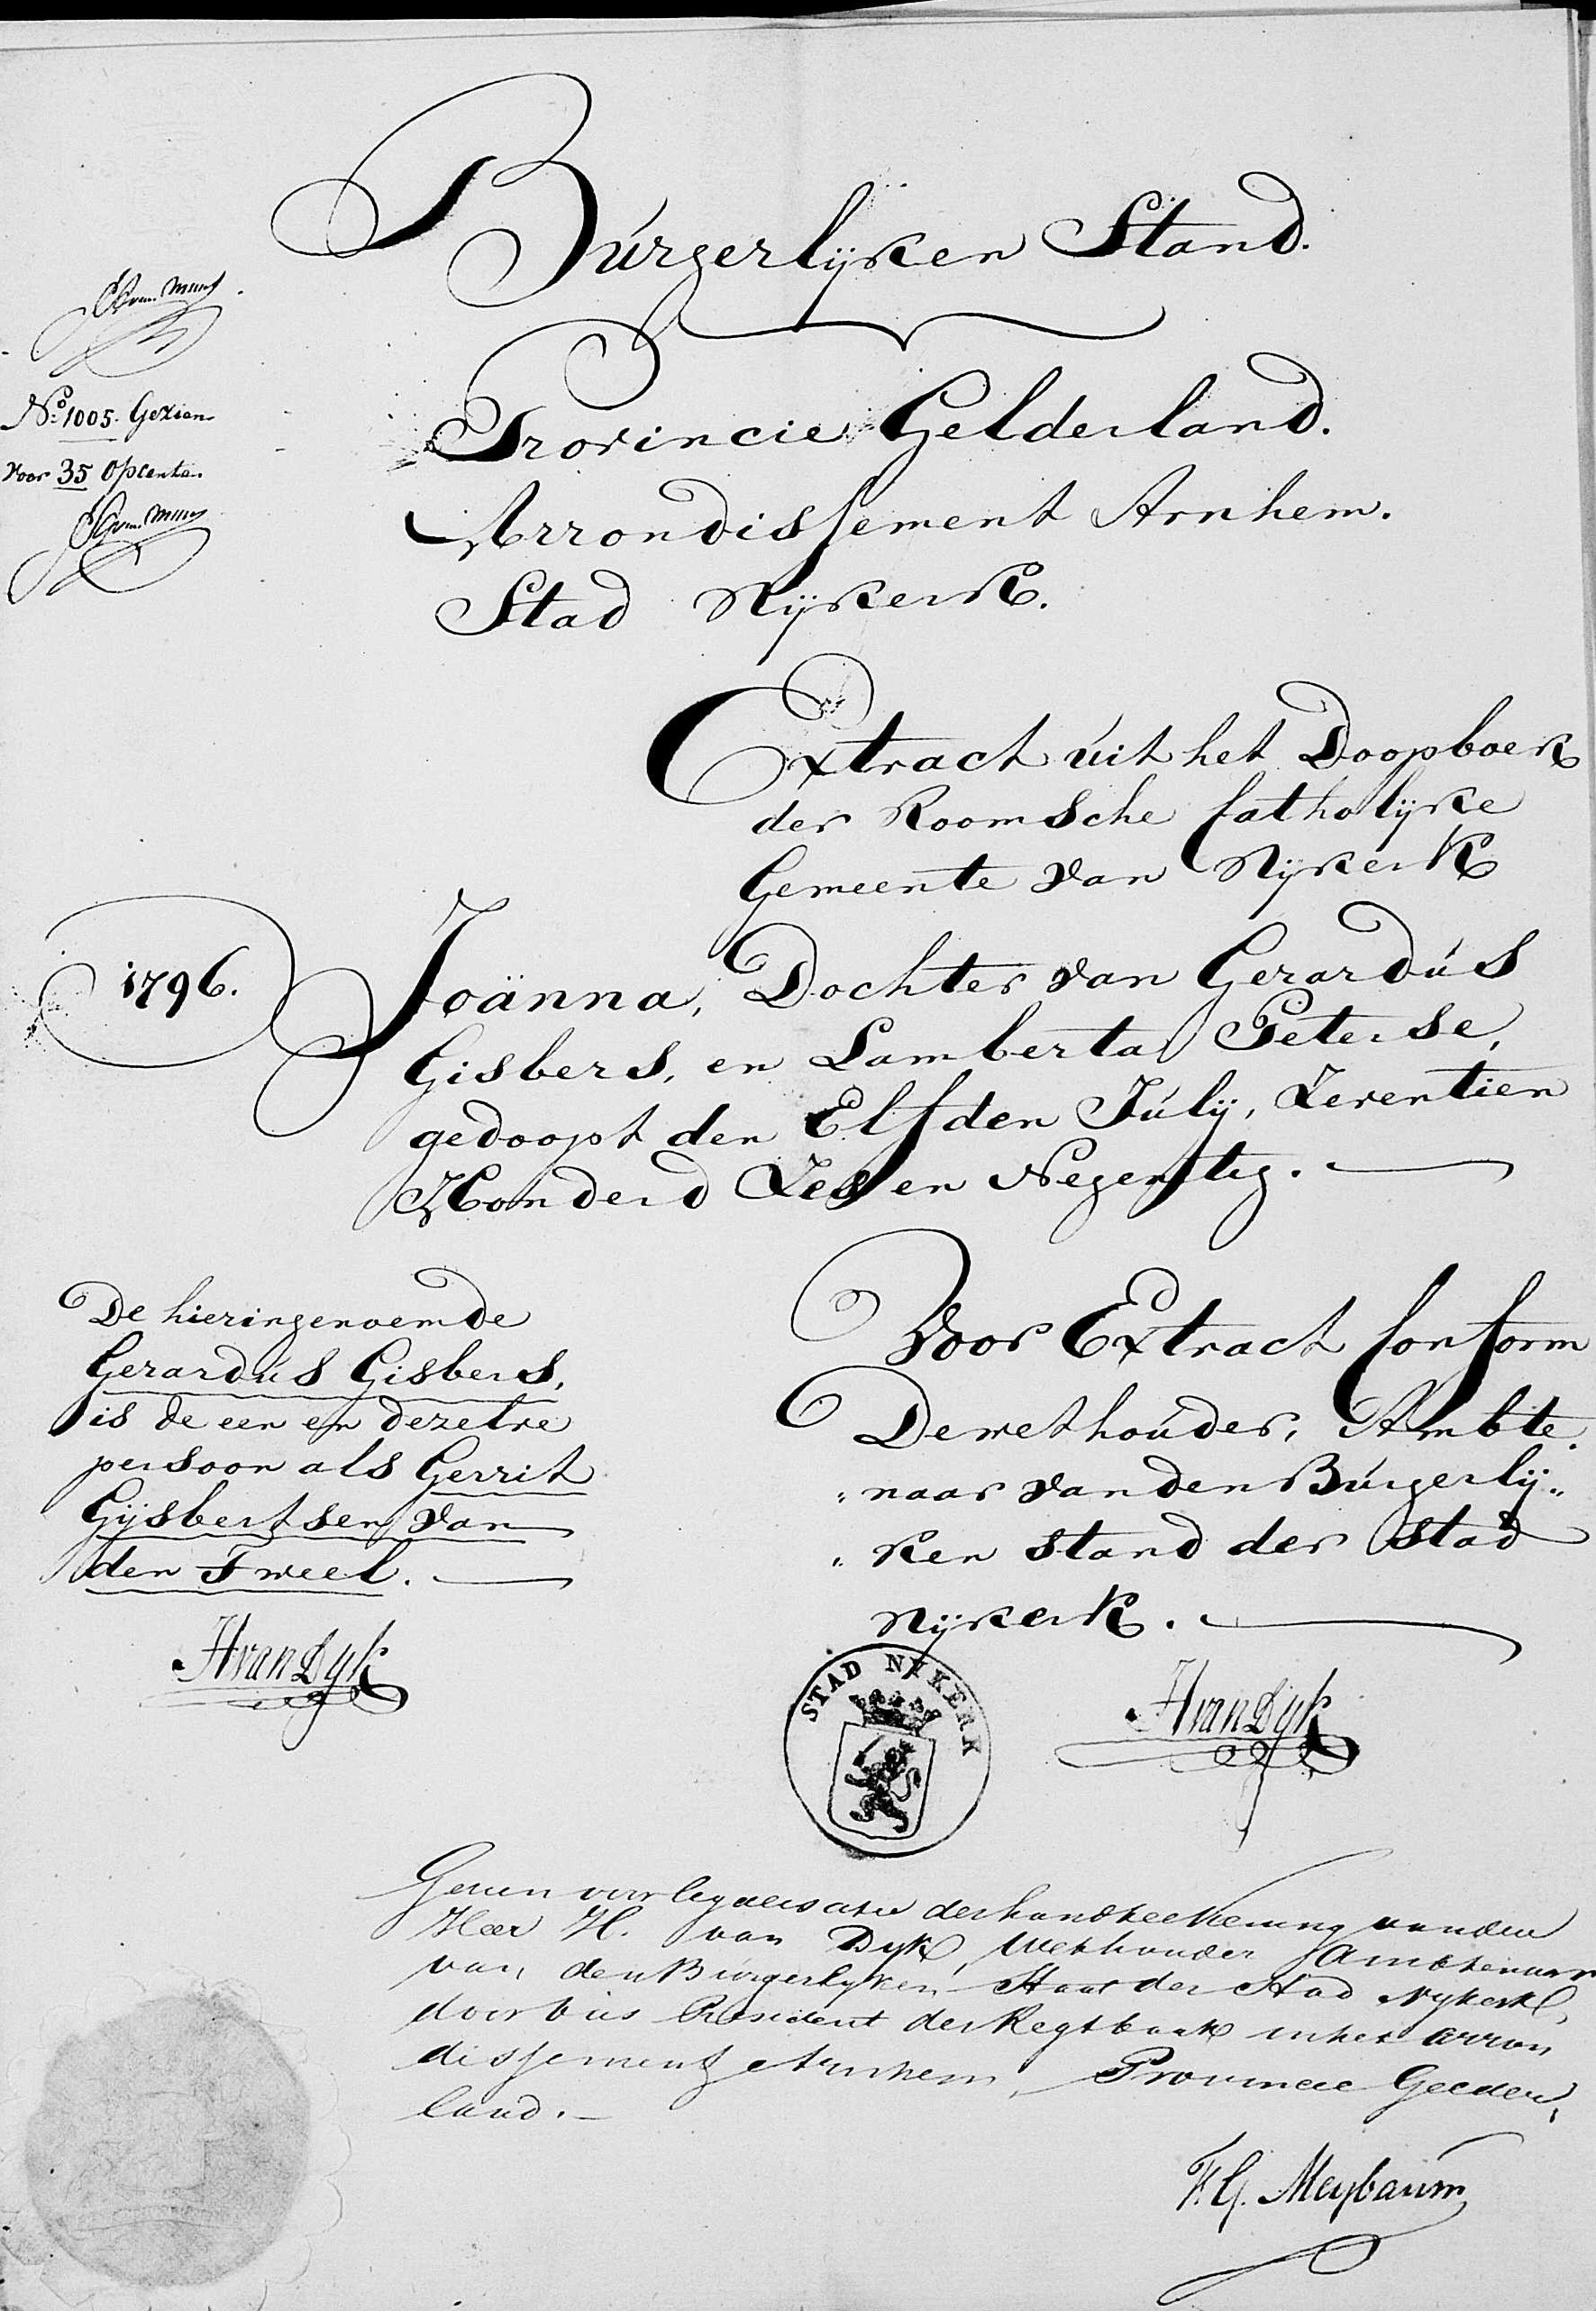 Búrgerlijken Stand.
No. 1005. Gezien
voor 35 Opcenten
Provincie Gelderland.
Arrondissement Arnhem.
Stad Nijkerk.
Extract úit het Doopboek
der Roomsche Catholijke
Gemeente van Nijkerk
1796.
Joänna, Dochter van Gerardús
Gisbers, en Lamberta Peterse,
gedoopt den Elfden Júlij, Zeventien
Honderd Zes en Negentig.
De hieringenoemde
Gerardús Gisbers,
is de een en dezelve
persoon als Gerrit
Gijsbertsen van
den Tweel.
HvanDyk
Voor Extract Conform
De wethoúder, Ambte„
„naar van den Búrgerlij„
„ken stand der stad
Nijkerk.
STAD NYKERK
HvanDyk
Gezien voor legalisatie der handteekening van den
Heer H. van Dyk, Wethouder Ambtenaar
van den Burgerlyken Staat der Stad Nykerk,
door ons President der Regtbank in het arron
dissement Arnhem, Provincie Gelder,
land.
F. G. Meybaum